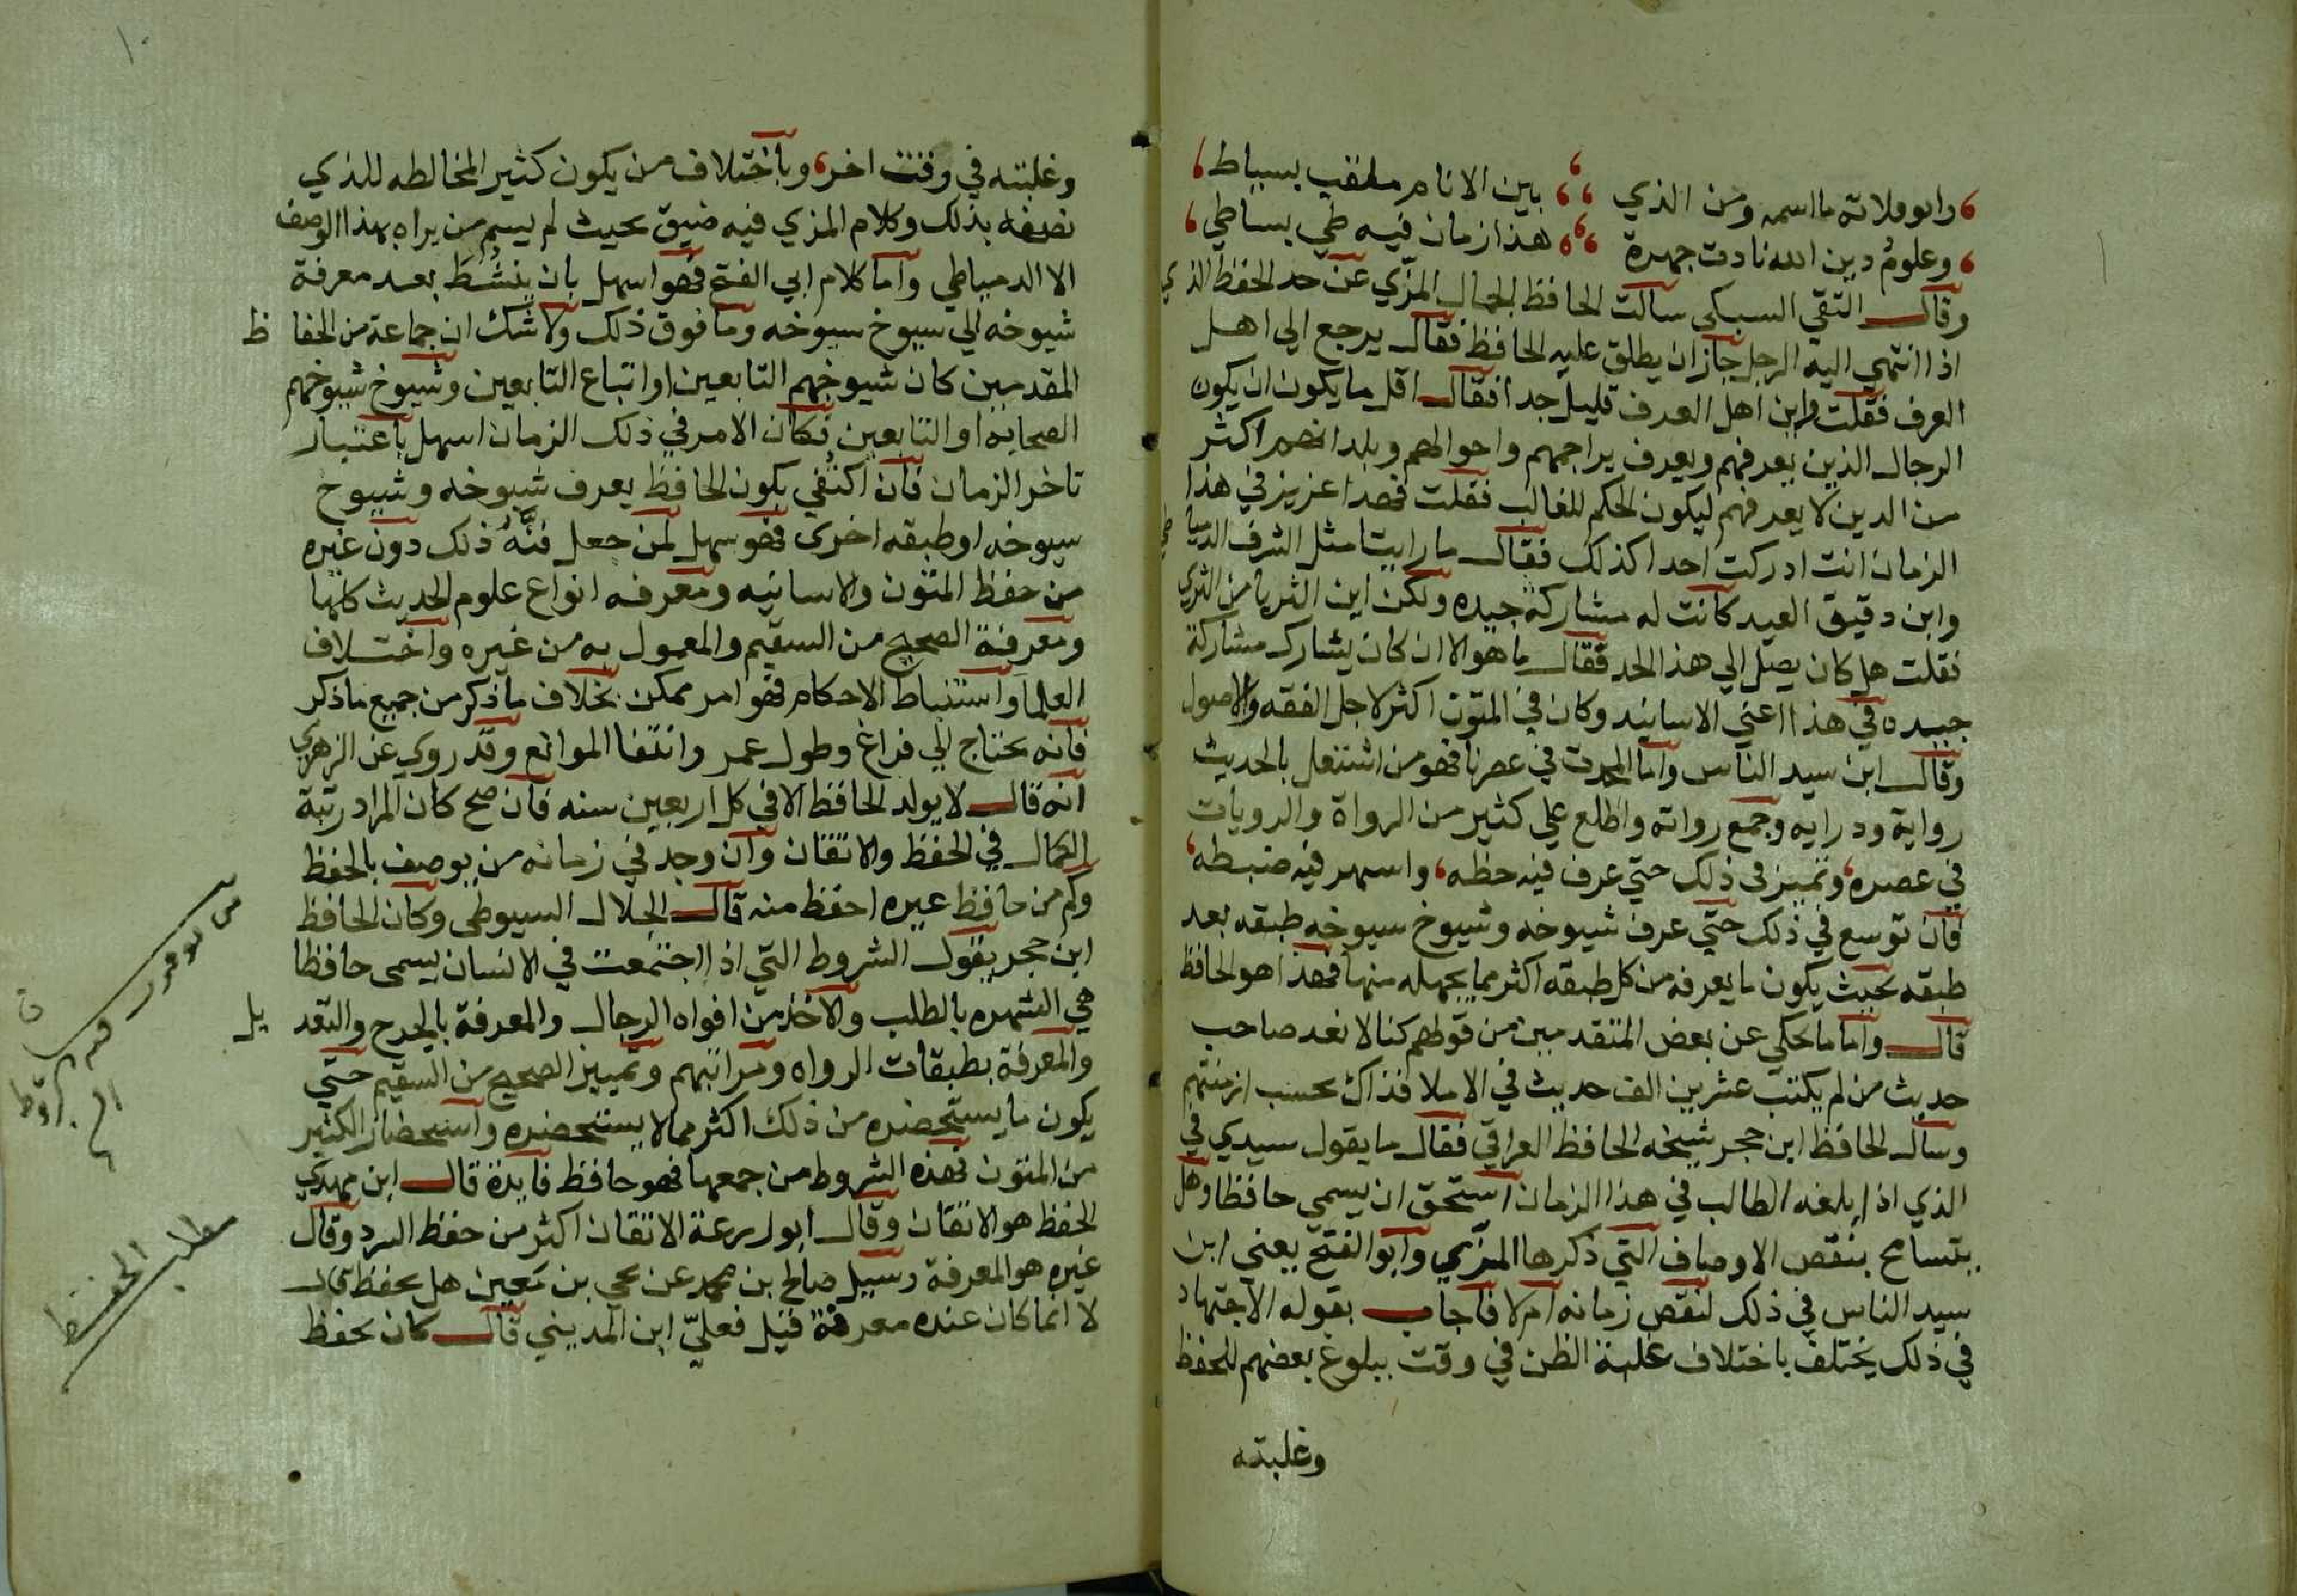 وابو فلاتة ما اسمه ومن الذي بين الانام ملقب بسباط
وعلوم دين الله نادت جهرة هذا زمان فيه طي بساطي
وقال التقي السبكي سالت الحافظ الجمال المزي عن حد الحفظ الذي
اذا انتهي اليه الرجل جاز ان يطلق عليه الحافظ فقال يرجع الي اهل
العرف فقلت واين اهل العرف قليل جدا فقال اقل ما يكون ان يكون
الرجال الذين يعرفهم ويعرف تراجمهم واحوالهم وبلدانهم اكثر
من الدين لا يعرفهم ليكون الحكم للغالب فقلت فهدا عزيز في هذا
الزمان انت ادركت احدا كذلك فقال ما رايت مثل الشرف الدمياطي
وابن دقيق العيد كانت له مشاركة جيده ولكن اين الثريا من الثري
فقلت هل كان يصل الي هذا الحد فقال ما هو الا ان كان يشارك مشاركة
جيده في هذا اعني الاسانيد وكان في المتون اكثر لاجل الفقه والاصول
وقال ابن سيد الناس واما المحدث في عصرنا فهو من اشتغل بالحديث
رواية ودرايه وجمع رواته واطلع علي كثير من الرواة والرويات
في عصره وتميز في ذلك حتي عرف فيه حظه واسهر فيه ضبطه
فان توسع في ذلك حتي عرف شيوخه وشيوخ سيوخه طبقه بعد
طبقه بحيث يكون ما يعرفه من كل طبقه اكثر مما يجهله منها فهذا هو الحافظ
قال واما ما يحكي عن بعض المتقدمين من قولهم كنا لا نعد صاحب
حديث من لم يكتب عشرين الف حديث في الاملا فذاك بحسب ازمنتهم
وسال الحافظ ابن حجر شيخه الحافظ العراقي فقال ما يقول سيدي في
الذي اذا بلغه الطالب في هذا الزمان استحق ان يسمي حافظا وهل
يتسامح بنقص الاوصاف التي ذكرها المزي وابو الفتح يعني ابن
سيد الناس في ذلك لنقص زمانه ام لا فاجاب بقوله الاجتهاد
في ذلك يختلف باختلاف غلبة الظن في وقت ببلوغ بعضهم للحفظ
وغلبته
١٠
وغلبته في وقت اخر وباختلاف من يكون كثير المخالطه للذي
نصفه بذلك وكلام المزي فيه ضيق بحيث لم يسم من يراه بهذا الوصف
الا الدمياطي واما كلام ابي الفتح فهو اسهل بان ينشط بعد معرفة
شيوخه الي سيوخ سيوخه وما فوق ذلك ولا شك ان جماعة من الحفاظ
المقدمين كان شيوخهم التابعين او اتباع التابعين وشيوخ شيوخهم
الصحابه او التابعين فكان الامر في ذلك الزمان اسهل باعتبار
تاخر الزمان فان اكتفي بكون الحافظ يعرف شيوخه وشيوخ
سيوخه او طبقه اخرى فهو سهل لمن جعل فنه ذلك دون غيره
من حفظ المتون والاسانيه ومعرفه انواع علوم الحديث كلها
ومعرفة الصحيح من السقيم والمعمول به من غيره واختلاف
العلما واستنباط الاحكام فهو امر ممكن بخلاف ما ذكر من جميع ما ذكر
فانه يحتاج الي فراغ وطول عمر وانتفا الموانع وقد روي عن الزهري
انه قال لا يولد الحافظ الا في كل اربعين سنه فان صح كان المراد رتبة
الكمال في الحفظ والاتقان وان وجد في زمانه من يوصف بالحفظ
وكم من حافظ غيره احفظ منه قال الجلال السيوطي وكان الحافظ
ابن حجر يقول الشروط التي اذا اجتمعت في الانسان يسمى حافظا
هي الشهره بالطلب والاخذ من افواه الرجال والمعرفة بالجرح والتعديل
والمعرفة بطبقات الرواه ومراتبهم وتمييز الصحيح من السقيم حتي
يكون ما يستحضره من ذلك اكثر مما لا يستحضره واستحضار الكثير
من المتون فهذه الشروط من جمعها فهو حافظ فايدة قال ابن مهدي
الحفظ هو الاتقان وقال ابو زرعة الاتقان اكثر من حفظ السرد وقال
غيره هو المعرفة وسيل صالح بن محمد عن يحي بن معين هل يحفظ قال
لا انما كان عنده معرفة قيل فعلي ابن المديني قال كان يحفظ